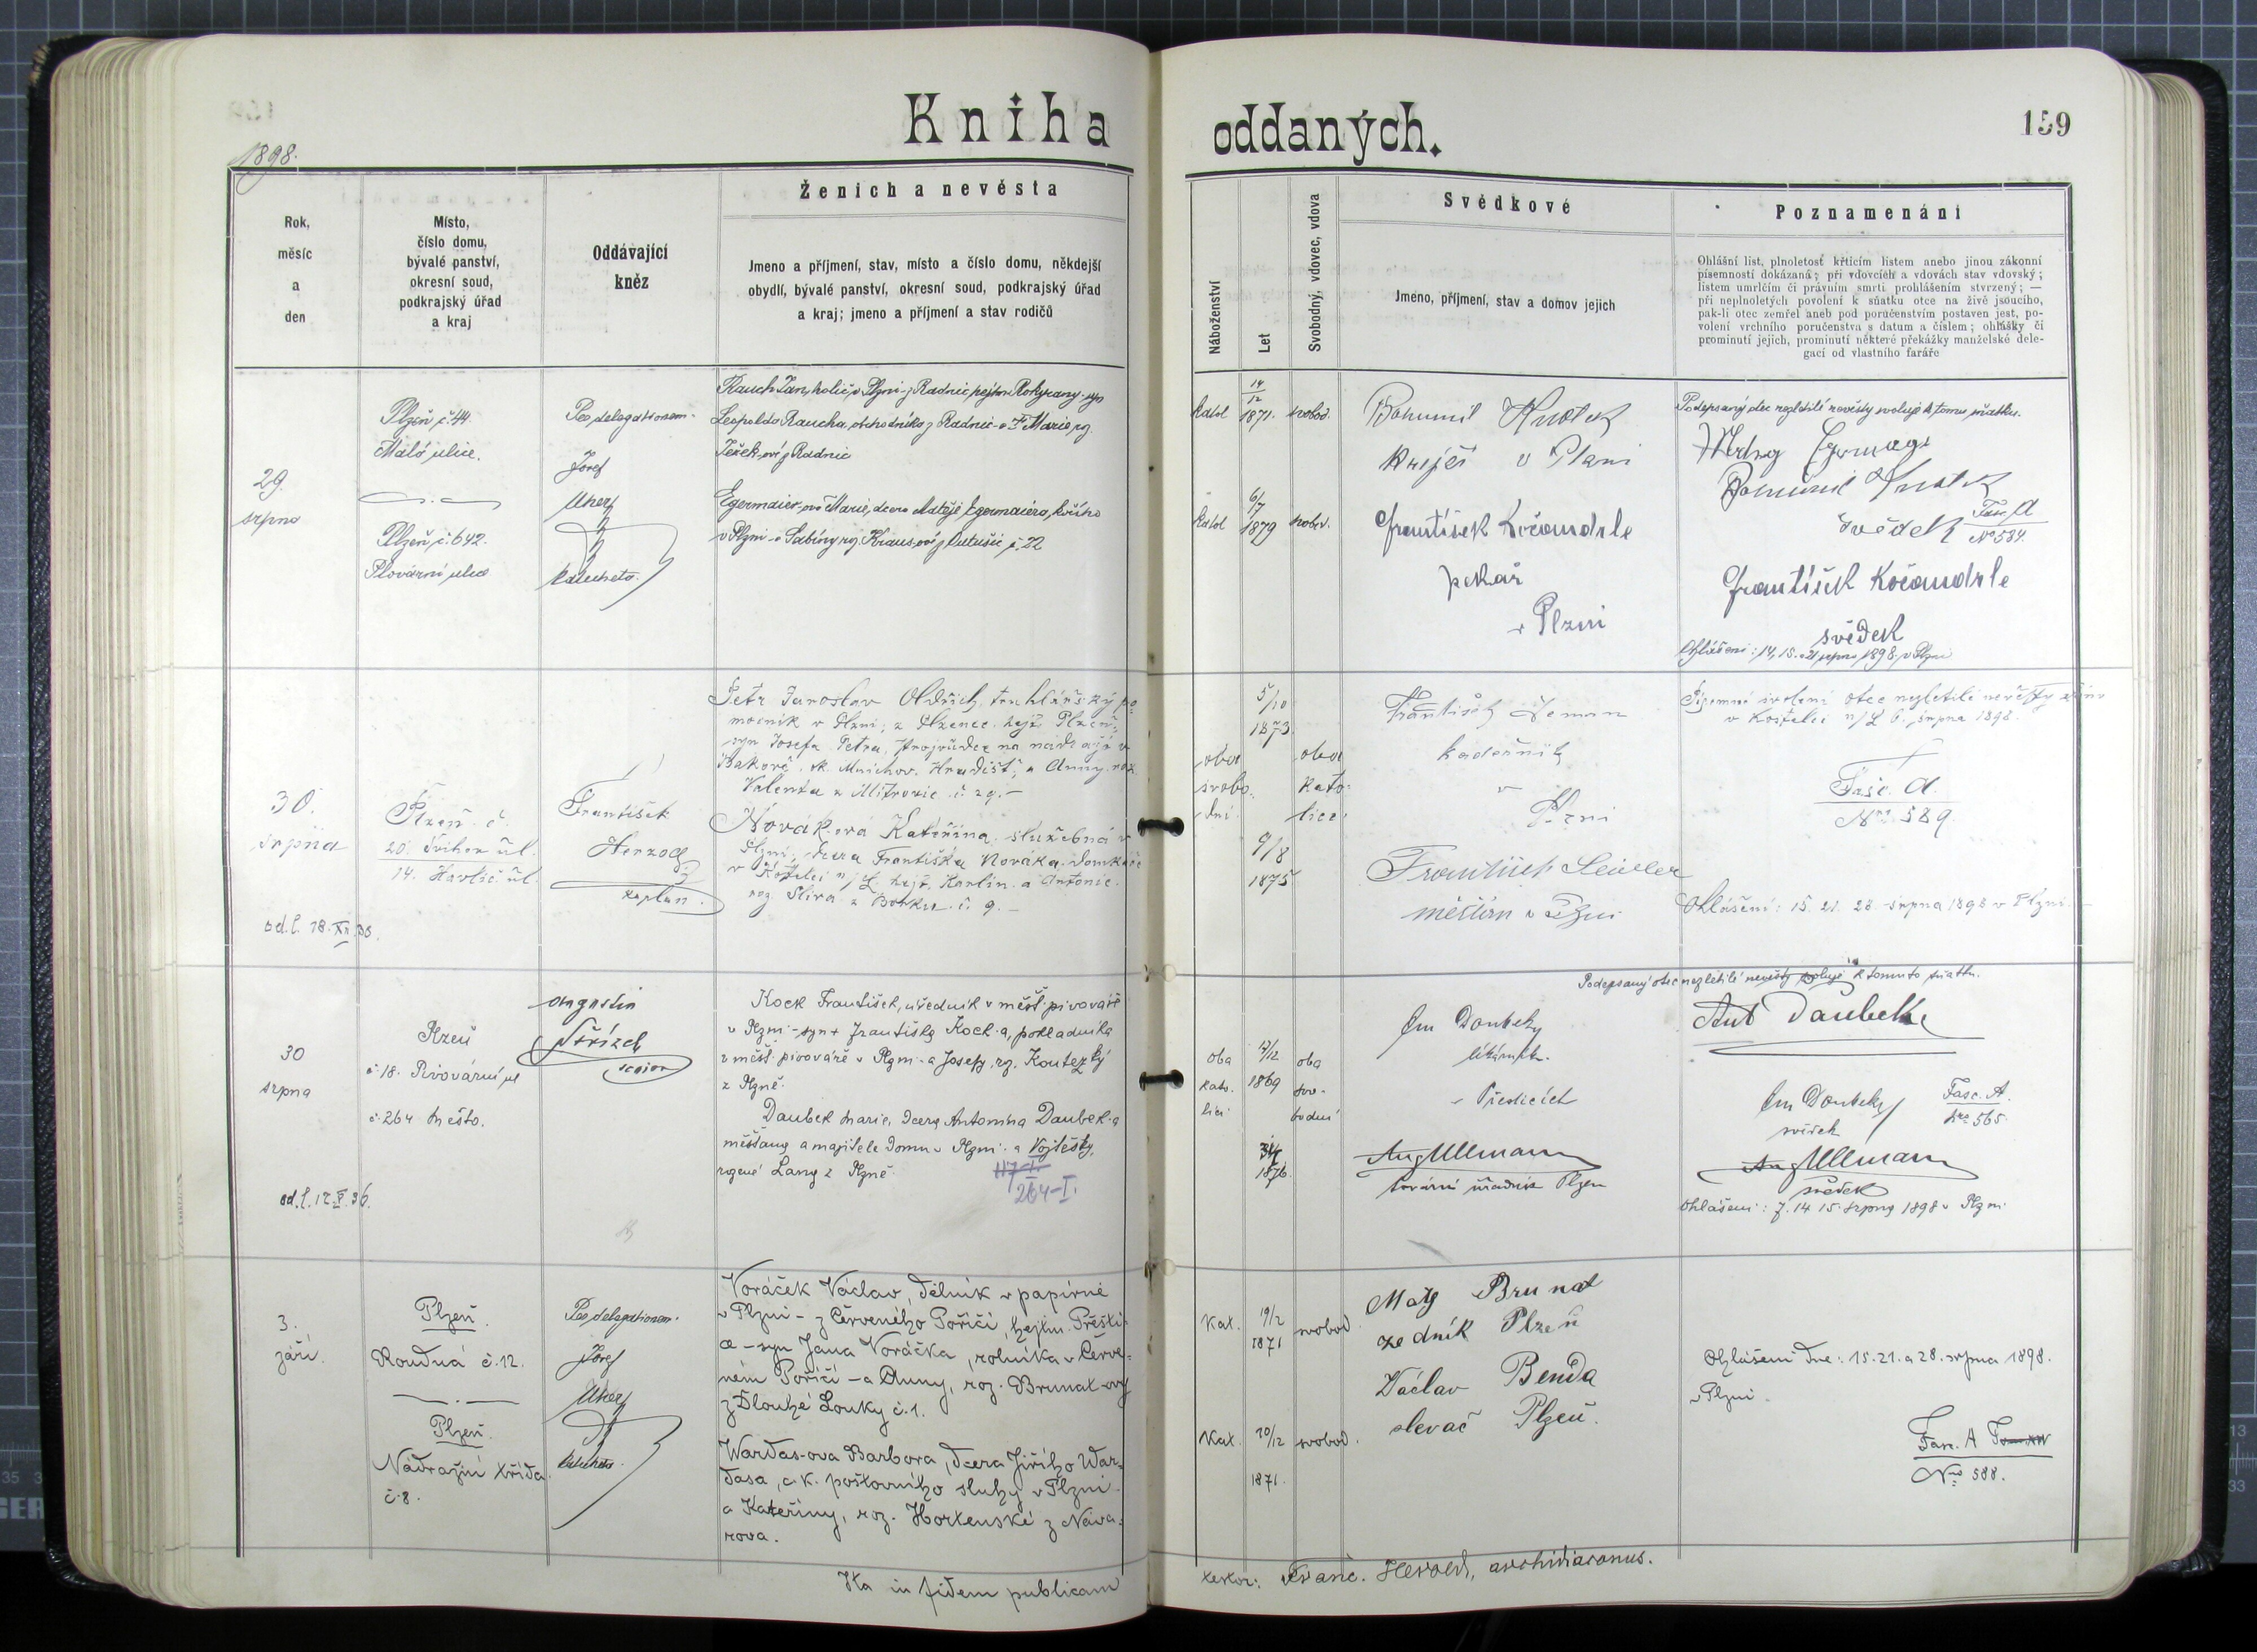 Kniha oddaných.
159
1898.
Rok, měsíc a den
Místo, číslo domu, bývalé panství, okresní soud, podkrajský úřad a kraj
Oddávající kněz
Ženich a nevěsta
Jmeno a příjmení, stav, místo a číslo domu, někdejší
obydlí, bývalé panství, okresní soud, podkrajský úřad
a kraj; jmeno a příjmení a stav rodičů
Náboženství
Let
Svobodný, vdovec, vdova
Svědkové
Jmeno, příjmení, stav a domov jejich
Poznamenání
Ohlášní list, plnoletosť křticím listem anebo jinou zákonní
písemností dokázaná; při vdovcích a vdovách stav vdovský;
listem umrlčím či právním smrti prohlášením stvrzený; —
při neplnoletých povolení k sňatku otce na živě jsoucího,
pak-li otec zemřel aneb pod poručenstvím postaven jest, po-
volení vrchního poručenstva s datum a číslem; ohlášky či
prominutí jejich, prominutí některé překážky manželské dele-
gací od vlastního faráře
29.
srpna
Plzeň č. 44.
Malá ulice.
Plzeň č. 642.
Plovární ulice
Ex delegatione
Josef
Uher
katecheta.
Rauch Jan, holič v Plzni - z Radnic, hejtm. Rokycany - syn
Leopolda Raucha, obchodníka z Radnic - a † Marie, rz.
Ježek-ové z Radnic
Egermaier-ova Marie, dcera Matěje Egermaiera,
v Plzni - a Sabiny rz. Kraus-ové z č. 22
katol
14/12
1871.
svobod.
katol
6/7
1879
svobod.
Bohumil Knotek
krejčí v Plzni
František Kočandrle
pekař
v Plzni
Podepsaný otec nezletilé nevěsty svoluje k tomu sňatku.
Bohumil Knotek
svědek
Fasc. A
No 584.
František Kočandrle
svědek
Ohlášení: 14, 15. a 21 srpna 1898. v Plzni
30.
srpna
od. l. 18. XII. 36.
Plzeň č.
20.
14. Havlíč. ul.
František
Herzog
kaplan.
Petr Jaroslav Oldřich, truhlářský po-
mocník v Plzni, z Plzence, hejt. Plzeň,
syn Josefa Petra, strojvůdce na nádraží v
Bakově, ok. Mnichov. Hradiště, a Anny roz.
Valenta z Mitrovic č. 29. —
Novák-ová Kateřina, služebná v
Plzni, dcera Františka Nováka domkáře
v Kostelci n/L. hejt. Karlín a Antonie
roz. Slíva z Borku č. 9. —
oba
svobo-
dní
5/10
1873
9/8
1875
oba
kato-
lící
František Neman
kadeřník
v
Plzni
František Seidler
měšťan v Plzni
Písemné svolení otce nezletilé nevěsty
v Kostelci n/L 6. srpna 1898.
Fasc. A.
Nro. 589.
Ohlášení: 15. 21. 28. srpna 1898 v Plzni. —
30
srpna
od. l. 12. V. 36.
Plzeň
č. 18. Pivovární ul
č. 264 Město.
Augustin
Střízek
senior
Kock František, úředník v měšť. pivováře
v Plzni - syn † Františka Kock-a, pokladníka
v měšť. pivováře v Plzni - a Josefy, rz. Koutezký
z Plzně.
Daubek Marie, dcera Antonína Daubek-a
měšťana a majitele domu v Plzni - a Vojtěšky,
rozené Lang z Plzně.
264-I.
oba
kato-
líci
12/12
1869
1876.
oba
svo-
bodni
Em Doubek
lékárník.
v Předlicích
Aug Ullmann
tovární úředník Plzen
Podepsaný otec nezletilé nevěsty svoluje k tomuto sňatku.
Ant Daubek
Em Doubek
svědek
Fasc. A.
Nro 565.
Aug Ullmann
svědek
Ohlášení: 7. 14 15. srpna 1898 v Plzni.
3.
září.
Plzeň.
Roudná č. 12.
Plzeň.
Nádražní třída
č. 8.
Ex delegatione
Josef
Uher
katecheta.
Voráček Václav, dělník v papírně
v Plzni - z Červeného Poříčí, hejtm. Přešti-
ce - syn Jana Voráčka, rolníka v Červe-
ném Poříčí - a Anny, roz. Brunat-ovy
z Dlouhé Louky č. 1.
Wardas-ova Barbora, dcera Jiřího War-
dasa, c. k. poštovního sluhy v Plzni -
a Kateřiny, roz. Hortenské z Náva-
rova.
Kat.
19/12
1871
svobod.
Kat.
20/12
1871.
svobod.
Matj Brunat
zedník Plzeň
Václav Benda
slevač Plzeň.
Ohlášení dne: 15. 21. a 28. srpna 1898.
v Plzni.
Fasc. A
Nro 588.
Ita in fidem publicam
testor: Franc. Herold, archidiaconus.